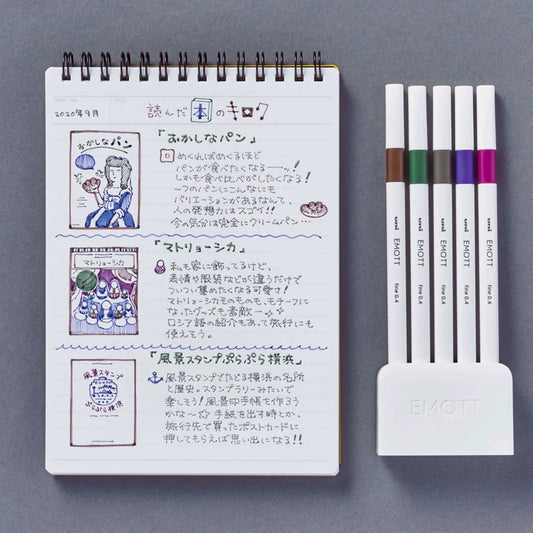 読んだ本のキロク
2020年9月
おかしなパン
「おかしなパン」
めくればめくるほど
パンが食べたくなるーーッ!
しかも食べ比べがしたくなる!
一つのパンにこんなにも
バリエーションがあるなんて、
人の発想力はスゴイ!!
今の気分は完全にクリームパン…
マトリョーシカ
「マトリョーシカ」
私も家に飾ってるけど、
表情や服装などが違うだけで
ついつい集めたくなる可愛さ!
マトリョーシカそのものも、モチーフに
なったグッズも素敵ー
ロシア語の紹介もあって旅行にも
使えそう。
風景スタンプ
ぶらぶら横浜
「風景スタンプぶらぶら横浜」
風景スタンプでたどる横浜の名所
と歴史。スタンプラリーみたいで
楽しそう!風景印手帳も作ろう
かな〜☆手紙を出す時とか、
旅行先で買ったポストカードに
押してもらえば思い出になる!!
uni EMOTT fine 0.4
uni EMOTT fine 0.4
uni EMOTT fine 0.4
uni EMOTT fine 0.4
uni EMOTT fine 0.4
EMOTT